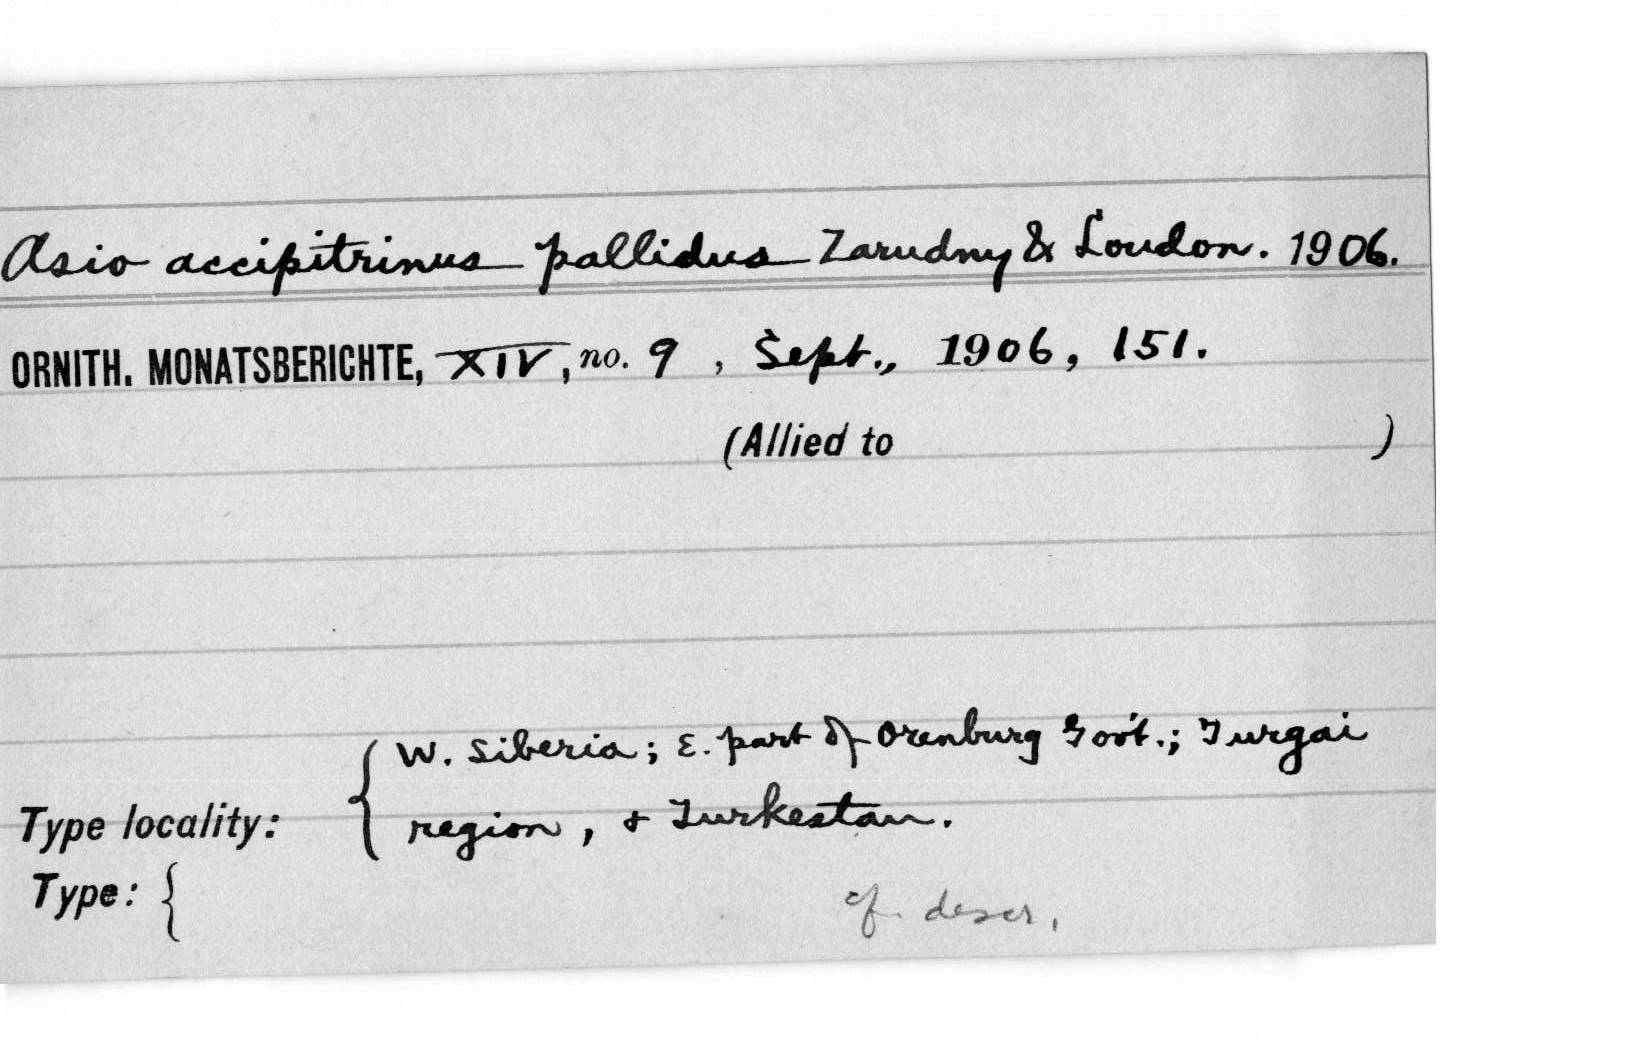 Asio accipitrinus pallidus Zarudny & Loudon. 1906.
ORNITH. MONATSBERICHTE, XIV, no. 9, Sept., 1906, 151.
(Allied to )
W. Siberia; E. part of Orenburg Gov't.; Turgai
Type locality: { region, & Turkestan.
Type: {
cf. descr.